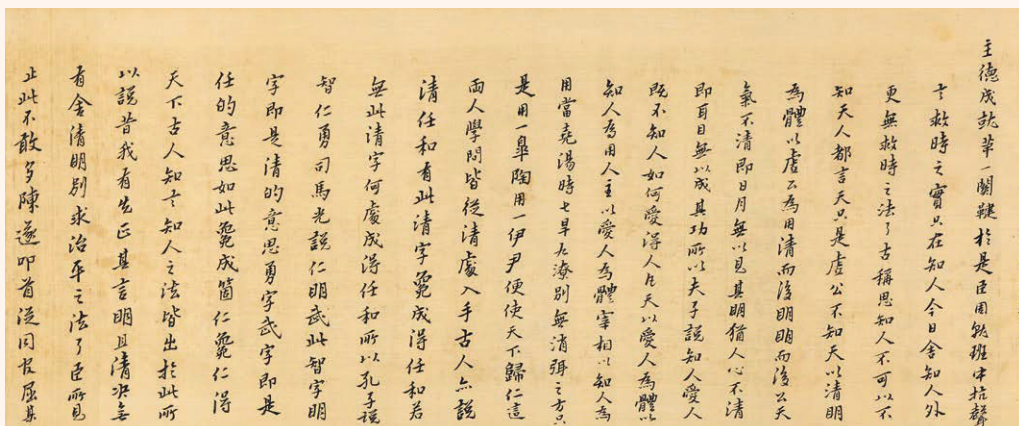 主德成就第一關鍵於是臣因就班中抗聲
言救時之實只在知人今日舍知人外
更無救時之法了古稱思知人不可以不
知天人都言天只是虛公不知天以清明
為體以虛公為用清而後明明而後公天
氣不清即日月無以見其明猶人心不清
即耳目無以成其功所以夫子說知人愛人
既不知人如何愛得人凡天以愛人為體以
知人為用人主以愛人為體宰相以知人為
用當堯湯時七旱九潦別無消弭之方只
是用一皐陶用一伊尹便使天下歸仁這
兩人學問皆從清處入手古人亦說
清任和有此清字纔成得任和若
無此清字何處成得任和所以孔子說
智仁勇司馬光說仁明武此智字明
字即是清的意思勇字武字即是
任的意思如此纔成箇仁纔仁得
天下古人知言知人之法皆出於此所
以說昔我有先正其言明且清決無
有舍清明別求治平之法了臣所見
止此不敢多陳遂叩首從同官屈